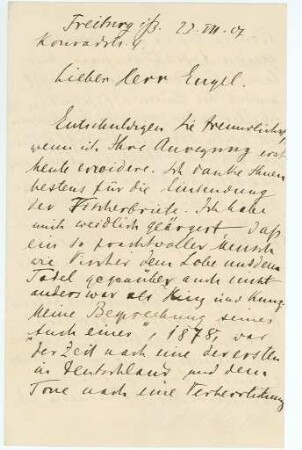 Freiburg i/B. 23. VII. 07.
Konradstr. 4
Lieber Herr Engel.
Entschuldigen Sie freundlichst,
wenn ich Ihre Anregung erst
heute erwidere. Ich danke Ihnen
bestens für die Einsendung
der Vischerbriefe. Ich habe
mich weidlich geärgert, daß
ein so prachtvoller Mensch
wie Vischer dem Lobe und dem
Tadel gegenüber auch nicht
anders war als Hinz und Kunz.
Meine Besprechung seines
"Auch einer", 1878, war
der Zeit nach eine der ersten
in Deutschland und dem
Tone nach eine Verherrlichung